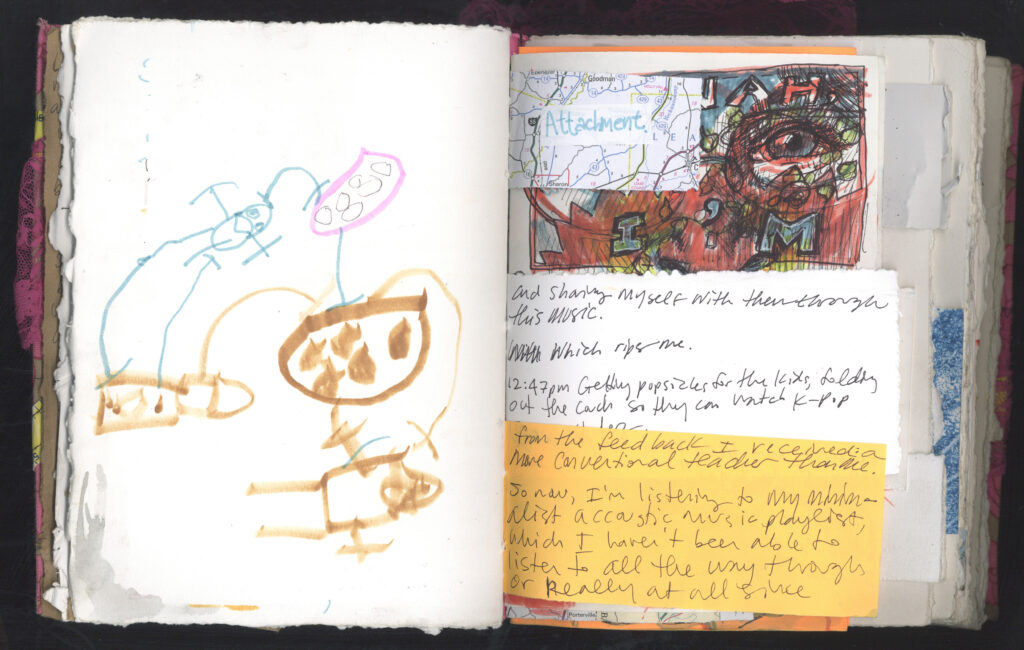 Ebenezer
Goodman
Attachment
L E A
Sharon
I'M
and sharing myself with them through
this music.
Which rips me.
12:47pm Getting popsicles for the kids, folding
out the couch so they can watch K-Pop
from the feedback I received
more conventional teacher than me.
So now, I'm listening to my minim-
alist accoustic music playlist,
which I haven't been able to
listen to all the way through
or really at all since
Porterville